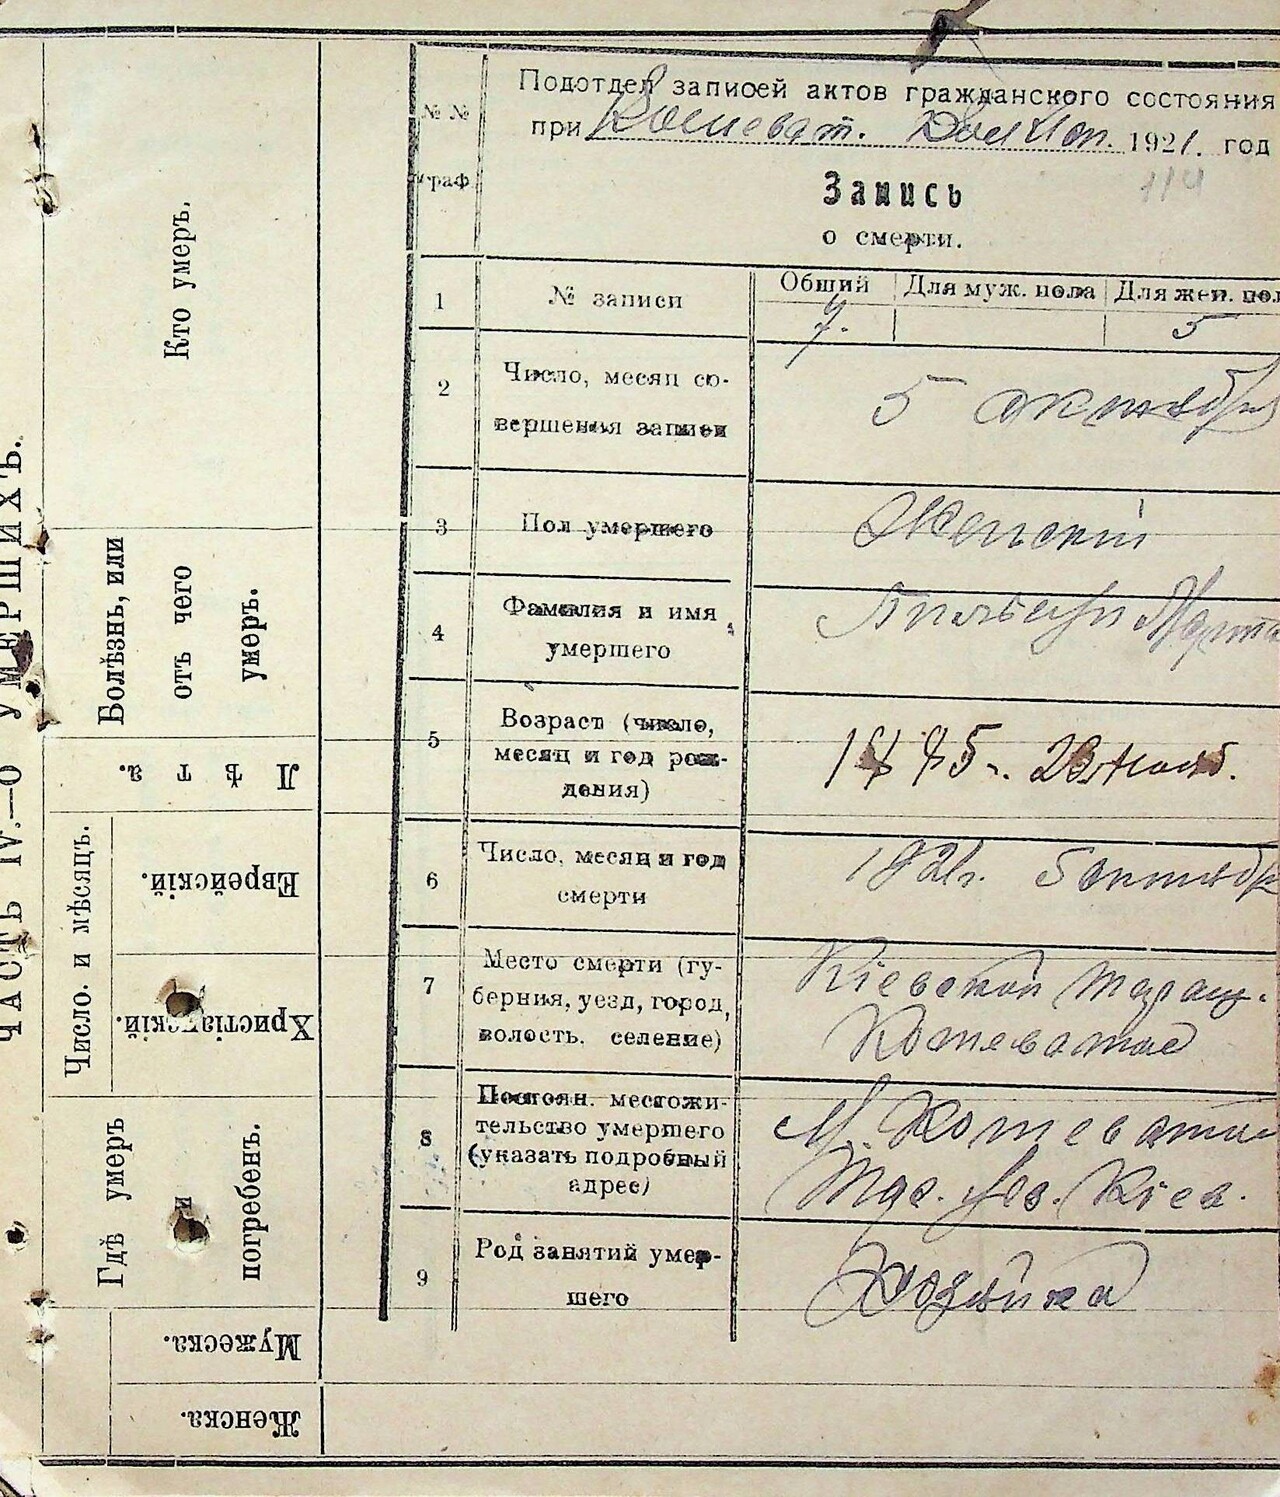 ЧАСТЬ IV.—О УМЕРШИХЪ.
Кто умеръ.
Болѣзнь, или
отъ чего
умеръ.
Лѣта.
Число и мѣсяцъ.
Еврейскій.
Христіанскій.
Гдѣ умеръ
и
погребенъ.
Мужеска.
Женска.
№ №
граф
Подотдел записей актов гражданского состояния
при Кошеват. 1921. год
114
Запись
о смерти.
1
№ записи
Общий
Для муж. пола
Для жен. пол
7.
5
2
Число, месяц со-
вершения записи
5 октября
3
Пол умершего
Женский
4
Фамилия и имя
умершего
Марта
5
Возраст (число,
месяц и год рож-
дения)
6
Число, месяц и год
смерти
1921г. 5 октября
7
Место смерти (гу-
берния, уезд, город,
волость, селение)
Кіевской Таращ.
Кошеватое
8
Постоян. местожи-
тельство умершего
(указать подробный
адрес)
М. Кошеватое
Уез. Кіев.
9
Род занятий умер-
шего
Хозяйка